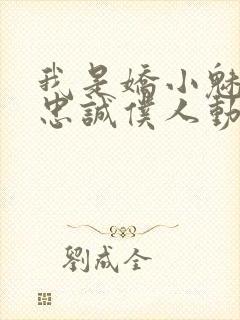 我是嬌小魅
忠誠僕人動
劉成全